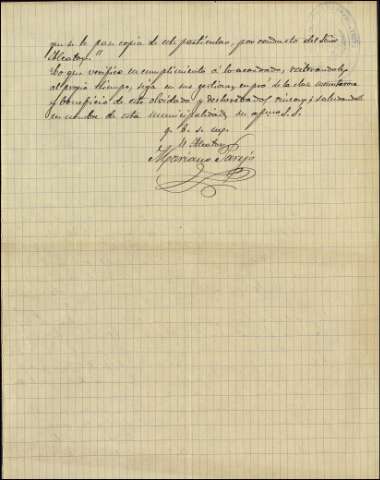 que se le pase copia de este particular, por conducto del Señor
Alcalde"
Lo que verifico en cumplimiento á lo acordado, reiterandole
al propio tiempo, siga en sus gestiones en pró de la clase
y beneficio de este olvidado y saludandole
en nombre de esta municipalidad su affmo S. S.
q. b. s. m.
El Alcalde
Mariano Parejo